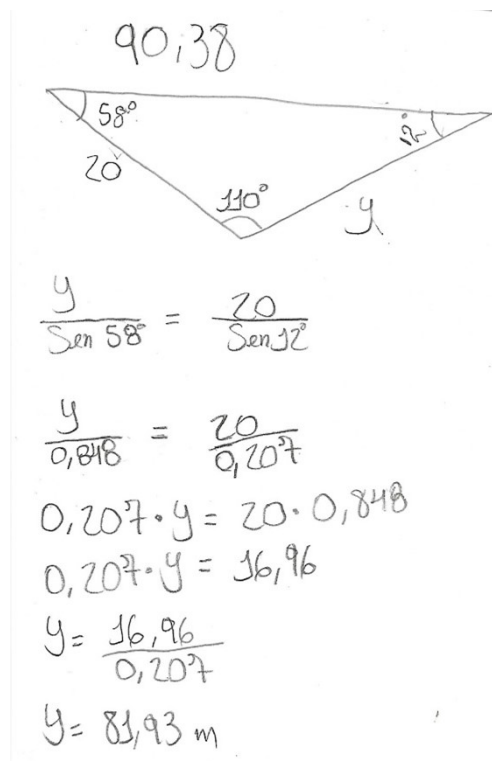 90,38
58° 12°
20
110° y
y/Sen 58° = 20/Sen 12°
y/0,848 = 20/0,207
0,207·y = 20·0,848
0,207·y = 16,96
y = 16,96/0,207
y = 81,93 m